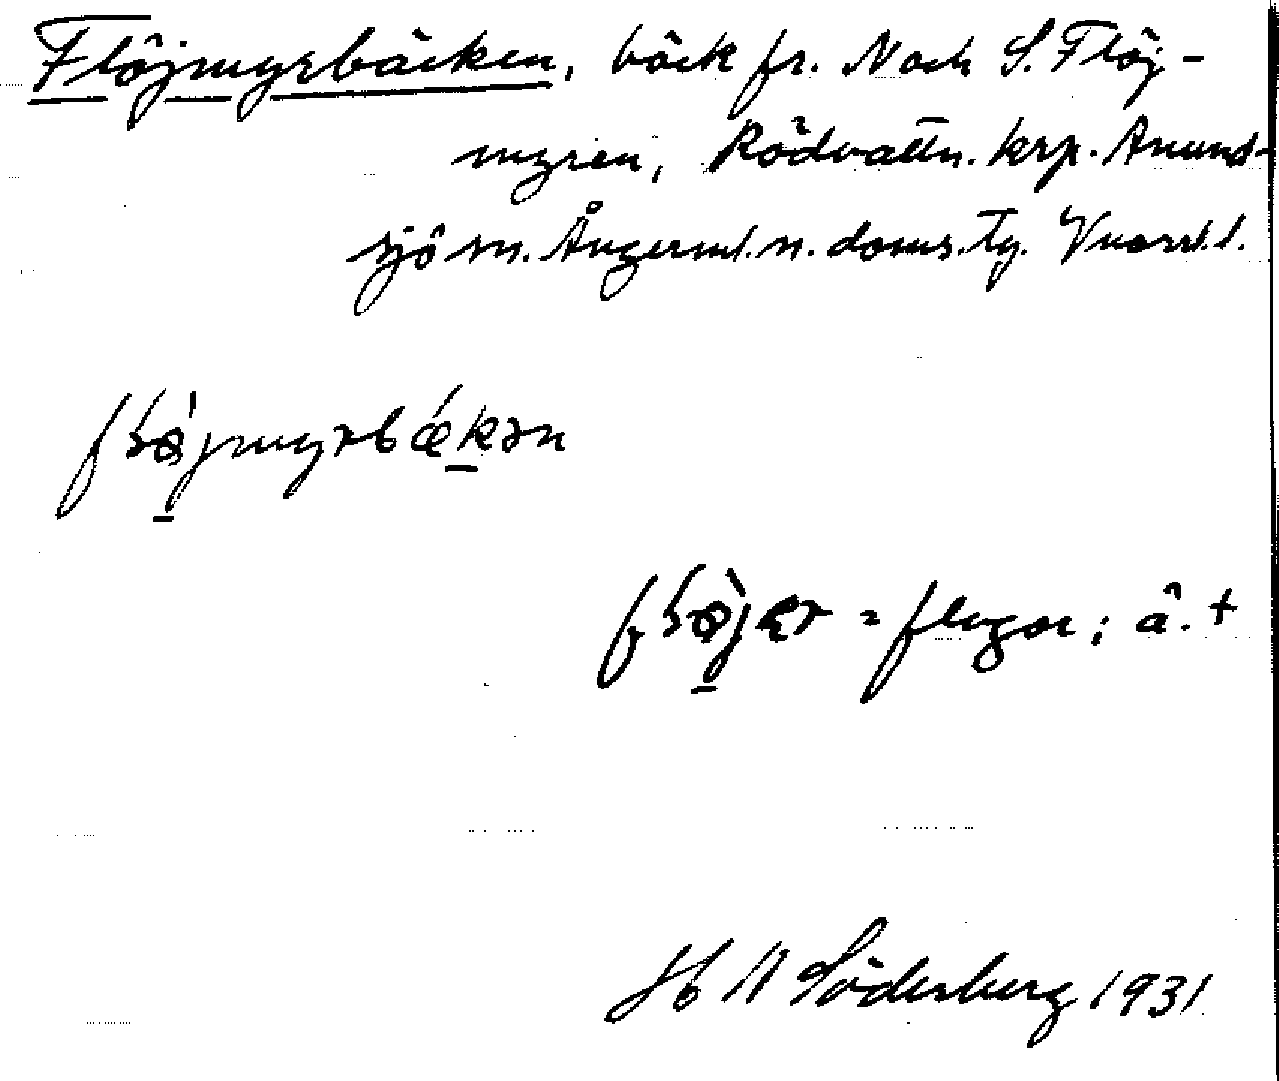 Flöjmyrbäcken, bäck fr. N och S. Flöj-
myren, Rödvattn. krp. Anund-
sjö sn. Ångerml. n. doms. Tg. Vnorrl. l.
fɫøjmyrbǽkən
fɫøjɐr = flugor; å. +
H N Söderberg 1931